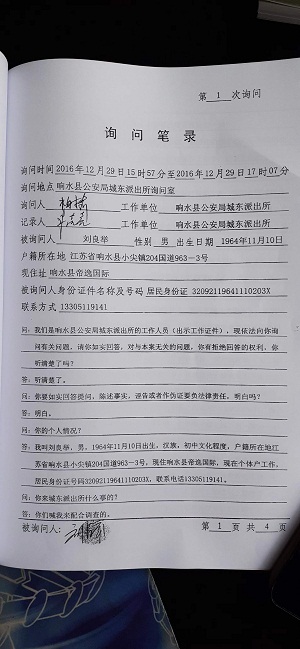 第 1 次询问
询 问 笔 录
询问时间 2016年12月29日15时57分至2016年12月29日17时07分
询问地点 响水县公安局城东派出所询问室
询问人 工作单位 响水县公安局城东派出所
记录人 工作单位 响水县公安局城东派出所
被询问人 刘良举 性别 男 出生日期 1964年11月10日
户籍所在地 江苏省响水县小尖镇204国道963－3号
现住址 响水县帝逸国际
被询问人身份证件名称及号码 居民身份证 32092119641110203X
联系方式 13305119141
问：我们是响水县公安局城东派出所的工作人员（出示工作证件），现依法向你询
问有关问题，请你如实回答，对与本案无关的问题，你有拒绝回答的权利，你
听清楚了吗？
答：听清楚了。
问：你要如实回答提问，陈述事实，诬告或者作伪证要负法律责任，明白吗？
答：明白。
问：你的个人情况？
答：我叫刘良举，男，1964年11月10日出生，汉族，初中文化程度，户籍所在地江
苏省响水县小尖镇204国道963－3号，现住响水县帝逸国际，现在个体户工作，
居民身份证号码32092119641110203X，联系电话13305119141。
问：你来城东派出所什么事的？
答：你们喊我来配合调查的。
被询问人： 第 1 页 共 4 页